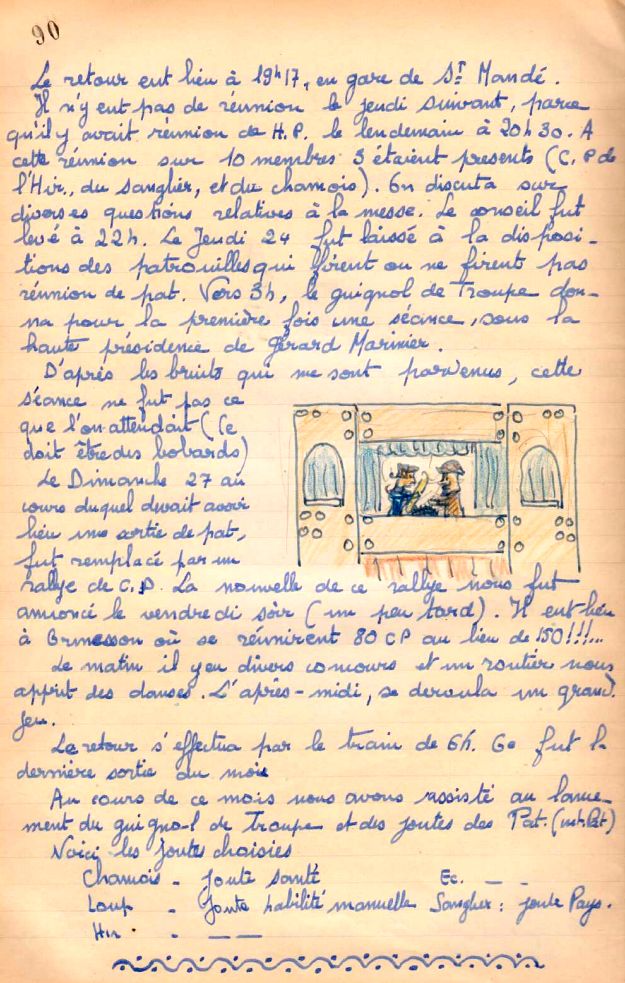 90
Le retour eut lieu à 19h17, en gare de St Mandé.
Il n'y eut pas de réunion le jeudi suivant, parce
qu'il y avait réunion de H.P. le lendemain à 20h30. A
cette réunion sur 10 membres 3 étaient presents (C.P de
l'Hir., du sanglier, et du chamois). On discuta sur
diverses questions relatives à la messe. Le conseil fut
levé à 22h. Le Jeudi 24 fut laissé à la disposi-
tions des patrouilles qui firent ou ne firent pas
réunion de pat. Vers 3h, le guignol de Troupe don-
na pour la première fois une séance, sous la
haute présidence de Gérard Marinier.
D'après les bruits qui me sont parvenus, cette
séance ne fut pas ce
que l'on attendait (Ce
doit être des bobards)
Le Dimanche 27 au
cours duquel devait avoir
lieu une sortie de pat,
fut remplacé par un
rallye de C.P. La nouvelle de ce rallye nous fut
annoncé le vendredi soir (un peu tard). Il eut lieu
à où se réunirent 80 CP au lieu de 150!!!...
Le matin il y eu divers concours et un routier nous
apprit des danses. L'après-midi, se deroula un grand
jeu.
Le retour s'effectua par le train de 6h. Ce fut la
dernière sortie du mois
Au cours de ce mois nous avons assisté au lance-
ment du guignol de Troupe et des joutes des Pat. (int.Pat)
Voici les joutes choisies
Chamois - Joute santé Ec. - — —
Loup - Joute habilité manuelle Sanglier: joute Pays.
Hir - — —